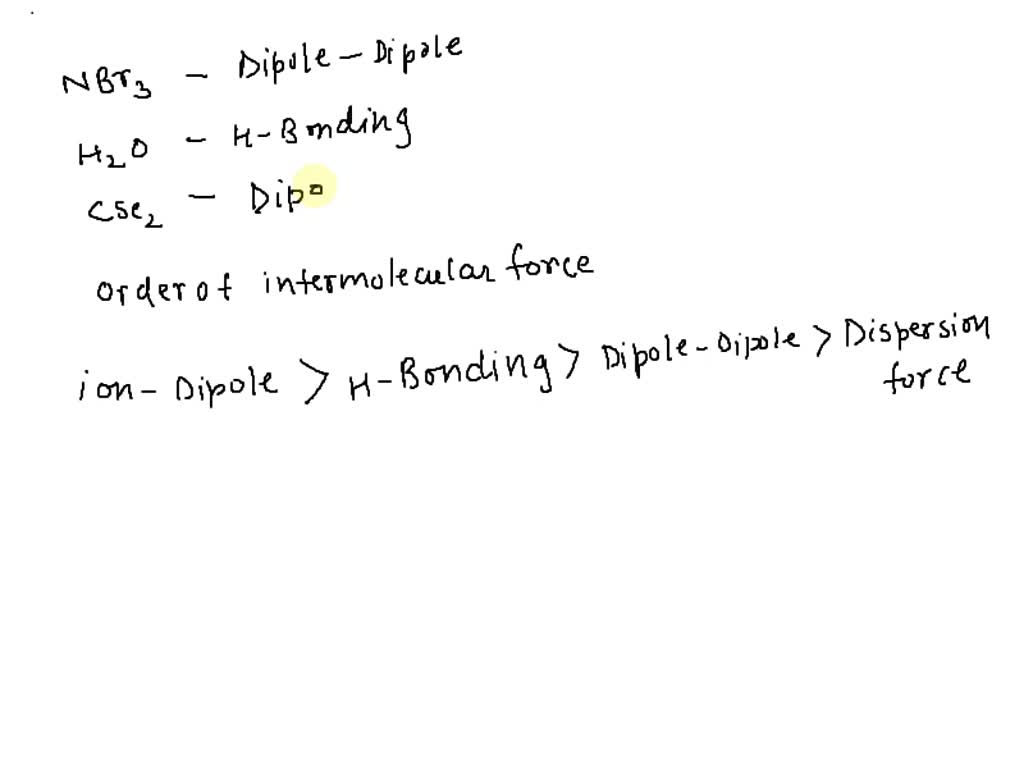 NBr3 - Dipole-Dipole
H2O - H-Bonding
CSe2 - Dipo
order of intermolecular force
ion-Dipole > H-Bonding > Dipole-Dipole > Dispersion force